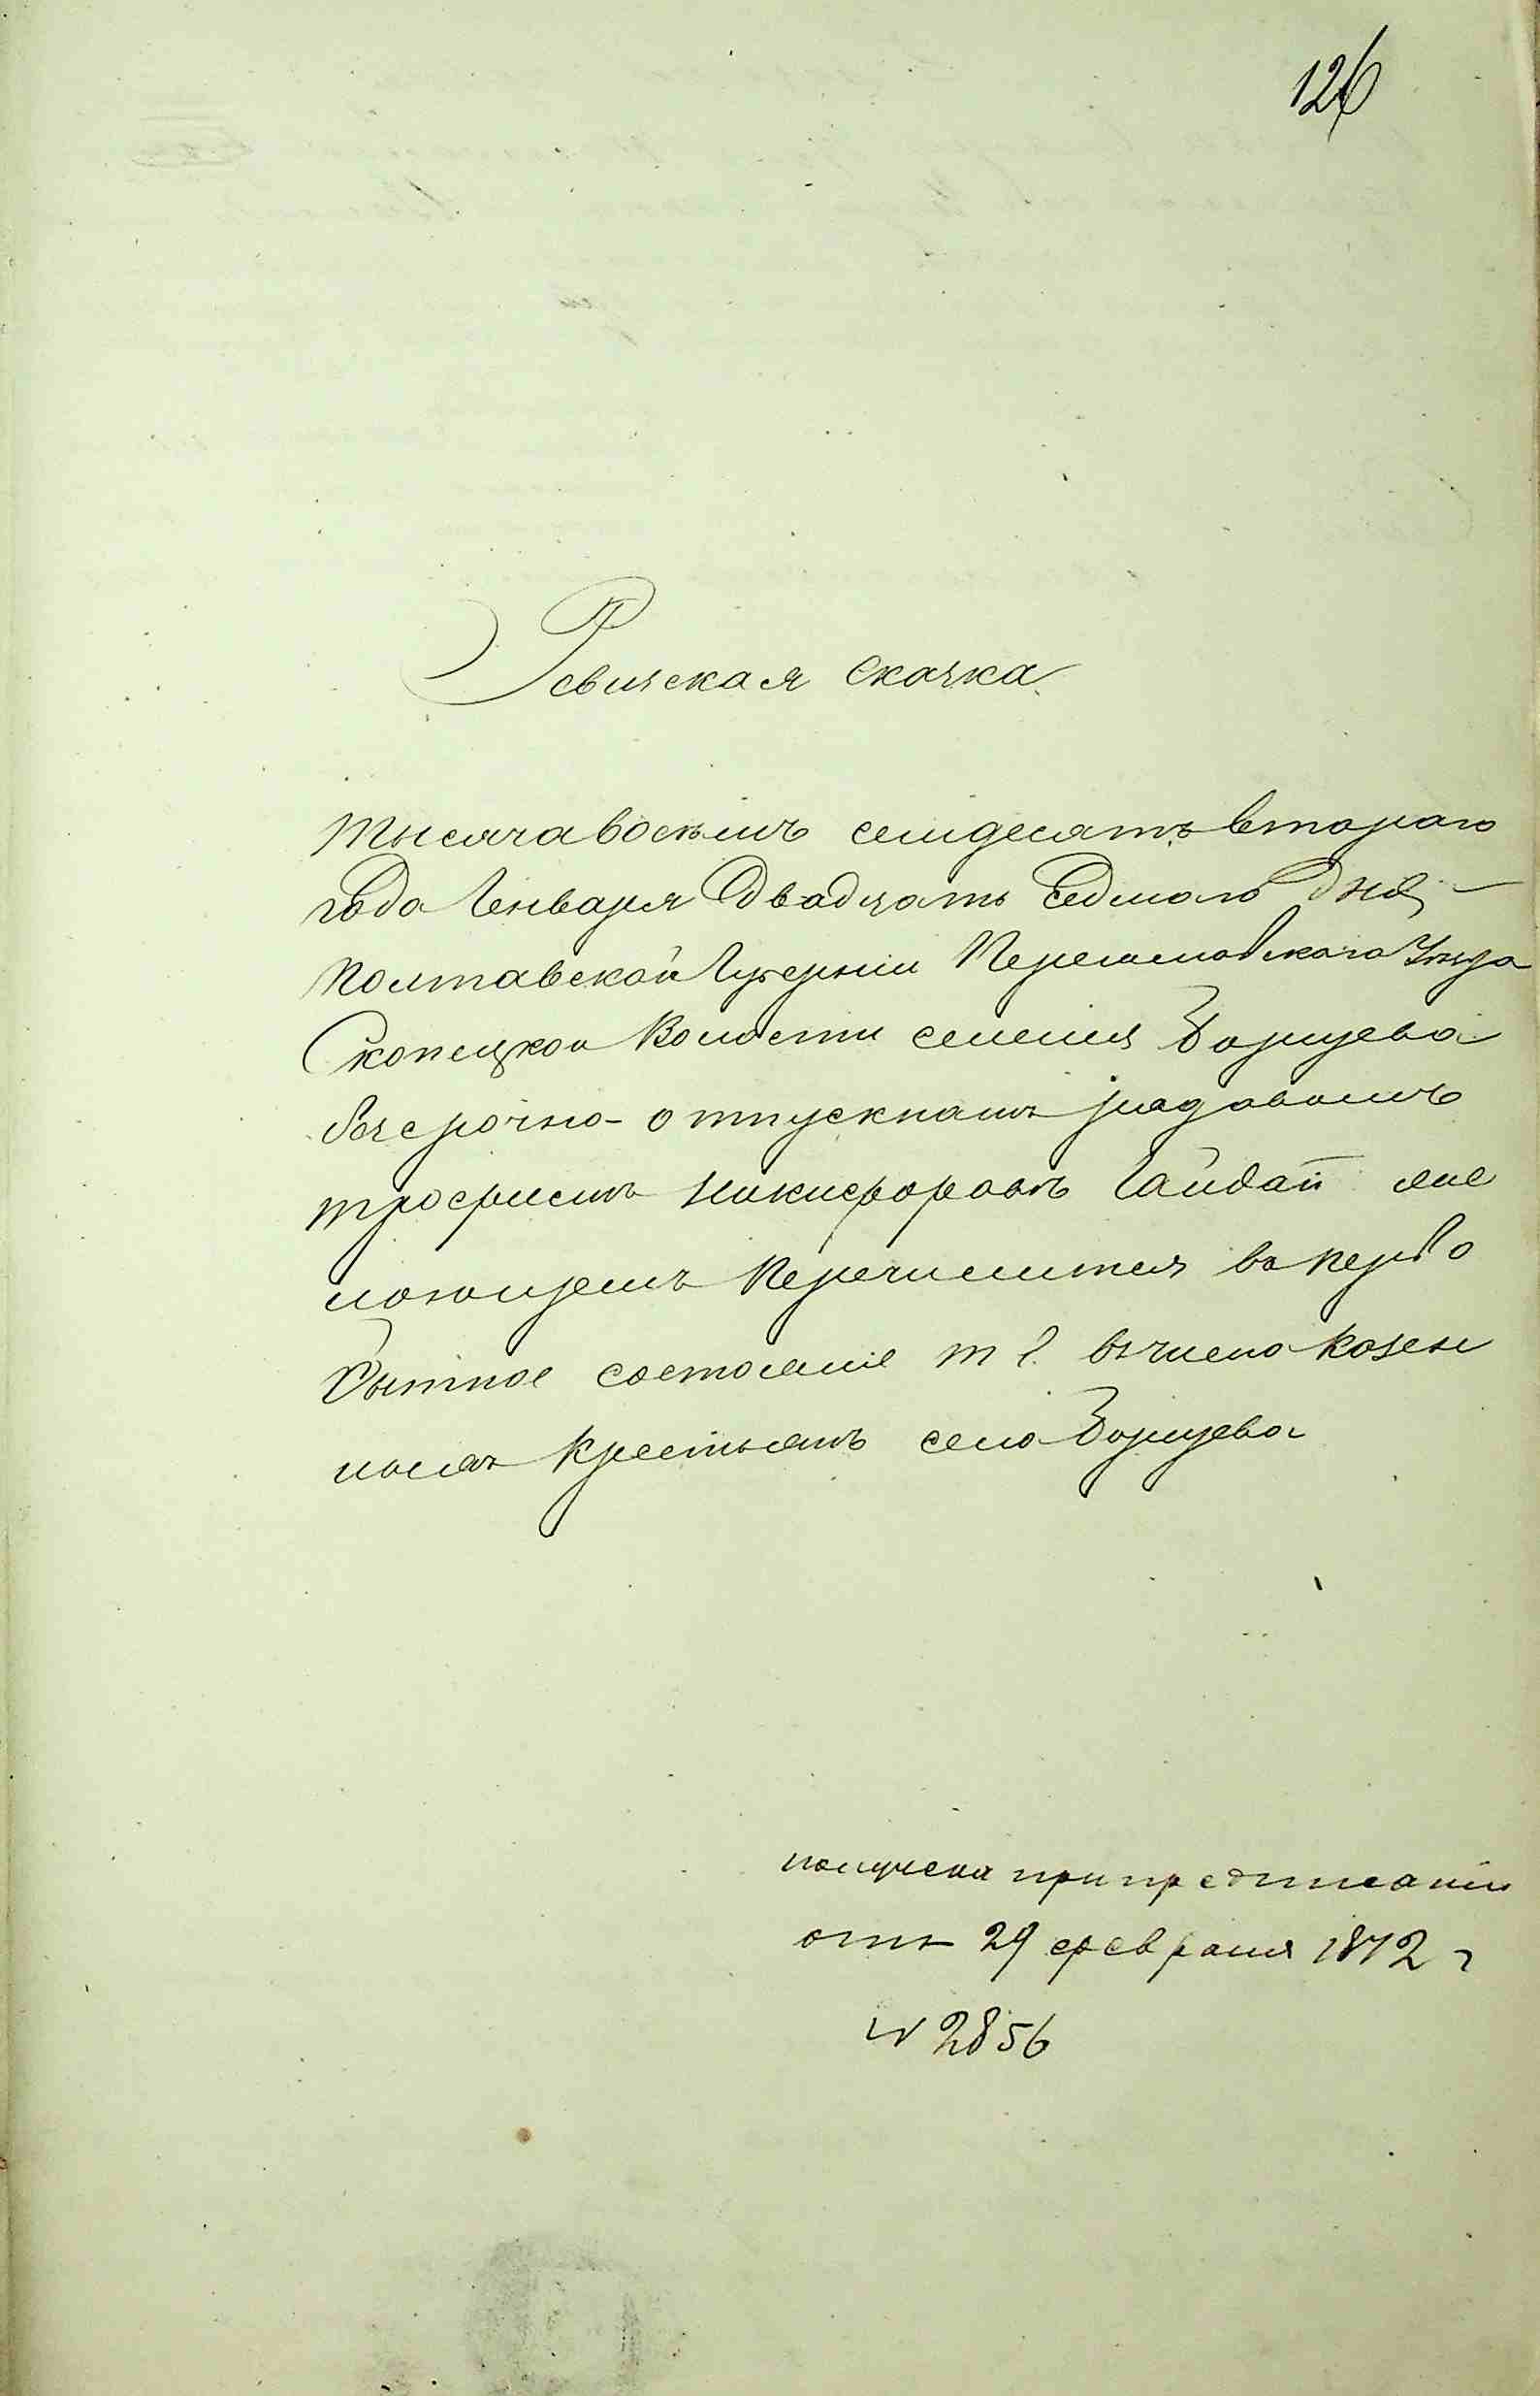 126
Ревизская сказка
Тысяча восемъ семдесятъ втораго
года Генваря Двадцать Седмого Дня
Полтавской Губерніи Переяславского Уезда
Скопецкой Волости селенія Борщева
безсрочно-отпускнамъ рядовомъ
Трофимъ Никифоровъ Гайдай
желающемъ Перечислится въ перво
бытное состояніе т е. въ число казен
ныхъ Крестьянъ село Борщева
получена при предписании
отъ 29 февраля 1872 г
№ 2856